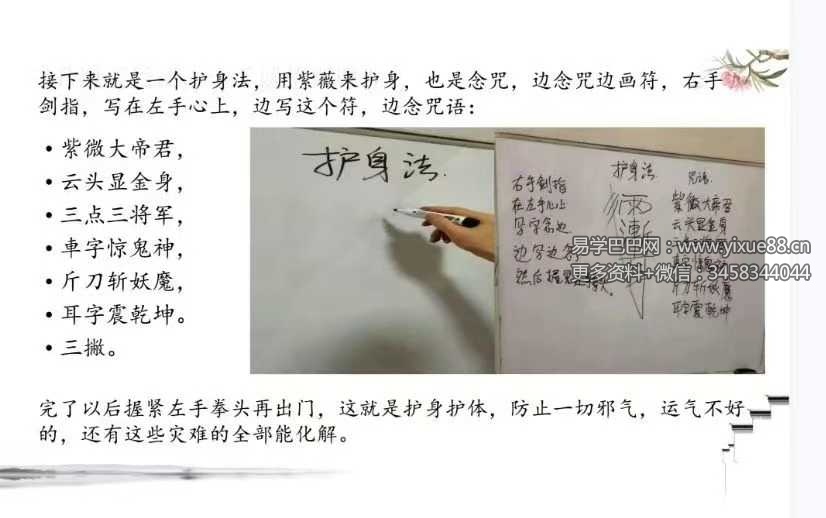 接下来就是一个护身法，用紫薇来护身，也是念咒，边念咒边画符，右手
剑指，写在左手心上，边写这个符，边念咒语：
•紫微大帝君，
•云头显金身，
•三点三将军，
•車字惊鬼神，
•斤刀斩妖魔，
•耳字震乾坤。
•三撇。
护身法.
护身法.
右手剑指
在左手心上
边写边
然后握
咒语.
紫薇大帝君
云头显金身
斤刀斩妖魔
耳字震乾坤
易学巴巴网：www.yixue88.cn
更多资料+微信：3458344044
完了以后握紧左手拳头再出门，这就是护身护体，防止一切邪气，运气不好
的，还有这些灾难的全部能化解。